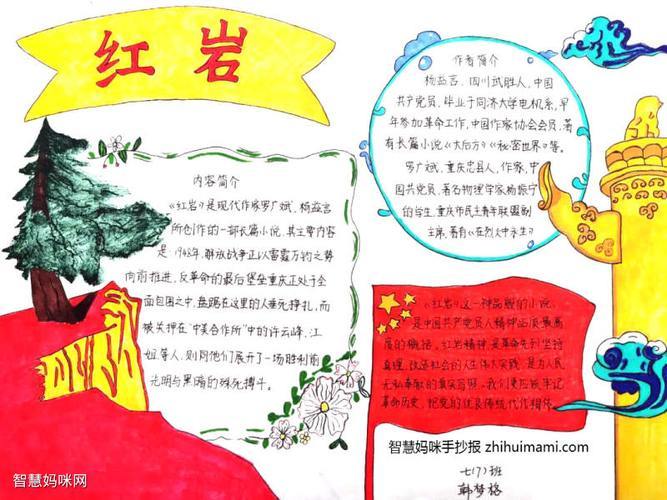 红岩
内容简介
《红岩》是现代作家罗广斌，杨益言
所创作的一部长篇小说，其主要内容
是：1948年，解放战争正以雷霆万钧之势
向前推进，反革命的最后堡垒重庆正处于全
面包围之中，盘踞在这里的人垂死挣扎，而
被关押在"中美合作所"中的许云峰、江
姐等人，则同他们展开了一场胜利前
光明与黑暗的殊死搏斗。
作者简介
杨益言，四川武胜人，中国
共产党员，毕业于同济大学电机系，早
年参加革命工作，中国作家协会会员，著
有长篇小说《大后方》《秘密世界》等。
罗广斌，重庆忠县人，作家，中
国共产党员，著名物理学家杨振宁
的学生，重庆市民主青年联盟副
主席，著有《在烈火中永生》
《红岩》这一种品貌的小说，
是中国共产党员人精神品质最高
度的概括，红岩精神，是革命先烈坚持
真理、改造社会的人生伟大实践，是为人民
无私奉献的真实写照，我们更应该牢记
革命历史，把党的优良传统代代相传
智慧妈咪手抄报 zhihuimami.com
七(7)班
韩梦格
智慧妈咪网